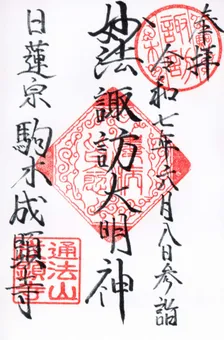 奉拝
令和七年六月八日参詣
妙法 諏訪大明神
日蓮宗 駒木成顕寺
通法山